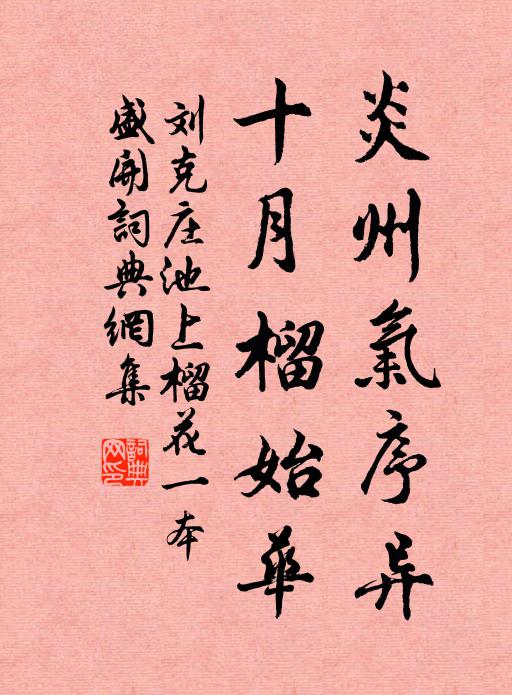 炎州氣序异
十月榴始華
刘克庄池上榴花一本
盛開詞典網集
詞典網印